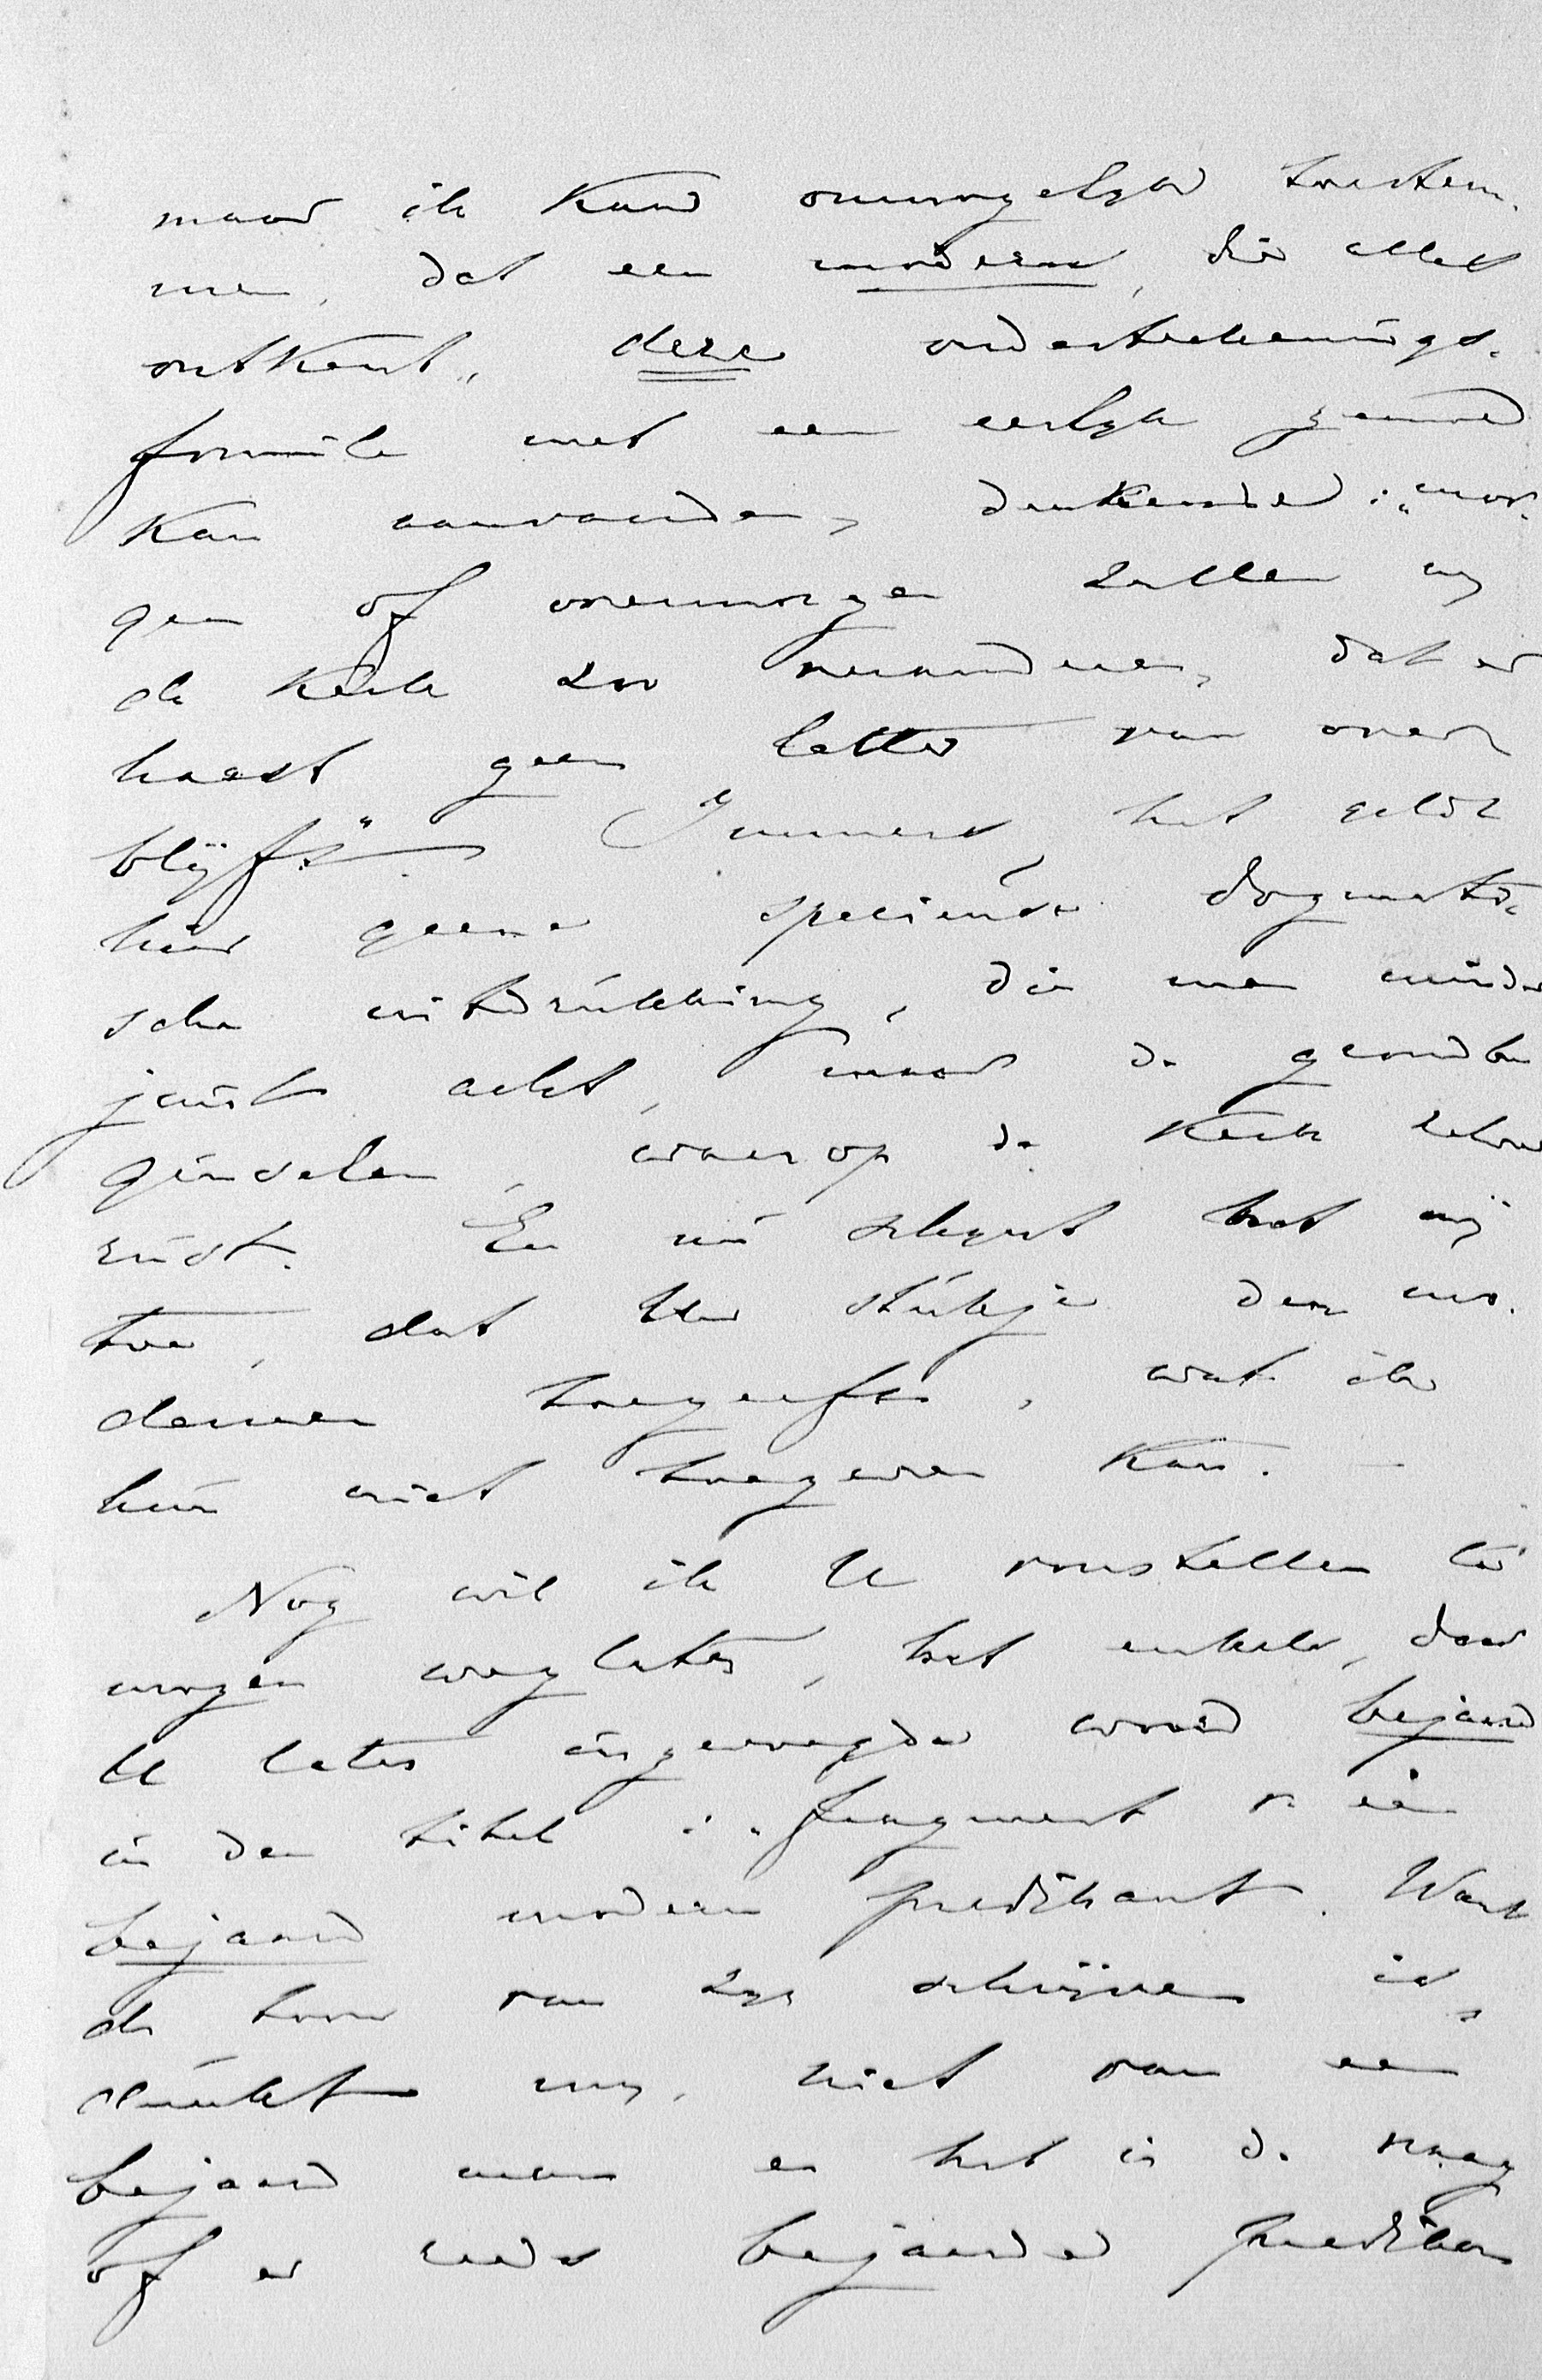 maar ik kan onmogelijk toestem-
men, dat een modern, die alles
ontkent, deze ondertekenings-
formule met een eerlijk gemoed
kan aanvaarden, denkende: "mor-
gen of overmorgen zullen wij
de kerk zoo veranderen, dat er
haast geen letter van over
blijft". Immers, het geldt
hier geene speciënse dogmati-
sche uitdrukking, die men minder
juist acht, maar de grondbe
ginselen, waarop de Kerk
rust. En nu schijnt het mij
toe, dat Uw stukje den mo-
dernen toegeeft, wat ik
hun niet toegeven kan. –
Nog wil ik U voorstellen te
mogen weglaten, het enkele, door
U later ingevoegde woord bejaard
in den titel: "fragment v. een
bejaard modern predikant. Want
de toon van zijn schrijven is,
dunkt mij, niet van een
bejaard man en het is de vraag
of er reeds bejaarde predikan